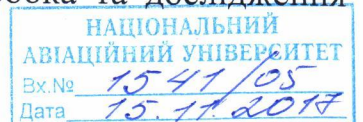 бка та дослідження
НАЦІОНАЛЬНИЙ
АВІАЦІЙНИЙ УНІВЕРСИТЕТ
Вх.№ 1541/05
Дата 15.11.2017